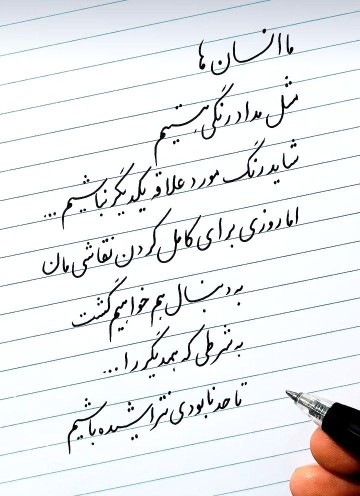 ما انسان ها
مثل مداد رنگی هستیم
شاید رنگ مورد علاقه یکدیگر نباشیم...
اما روزی برای کامل کردن نقاشی مان
به دنبال هم خواهیم گشت
به شرطی که همدیگر را...
تا حد نابودی نتراشیده باشیم